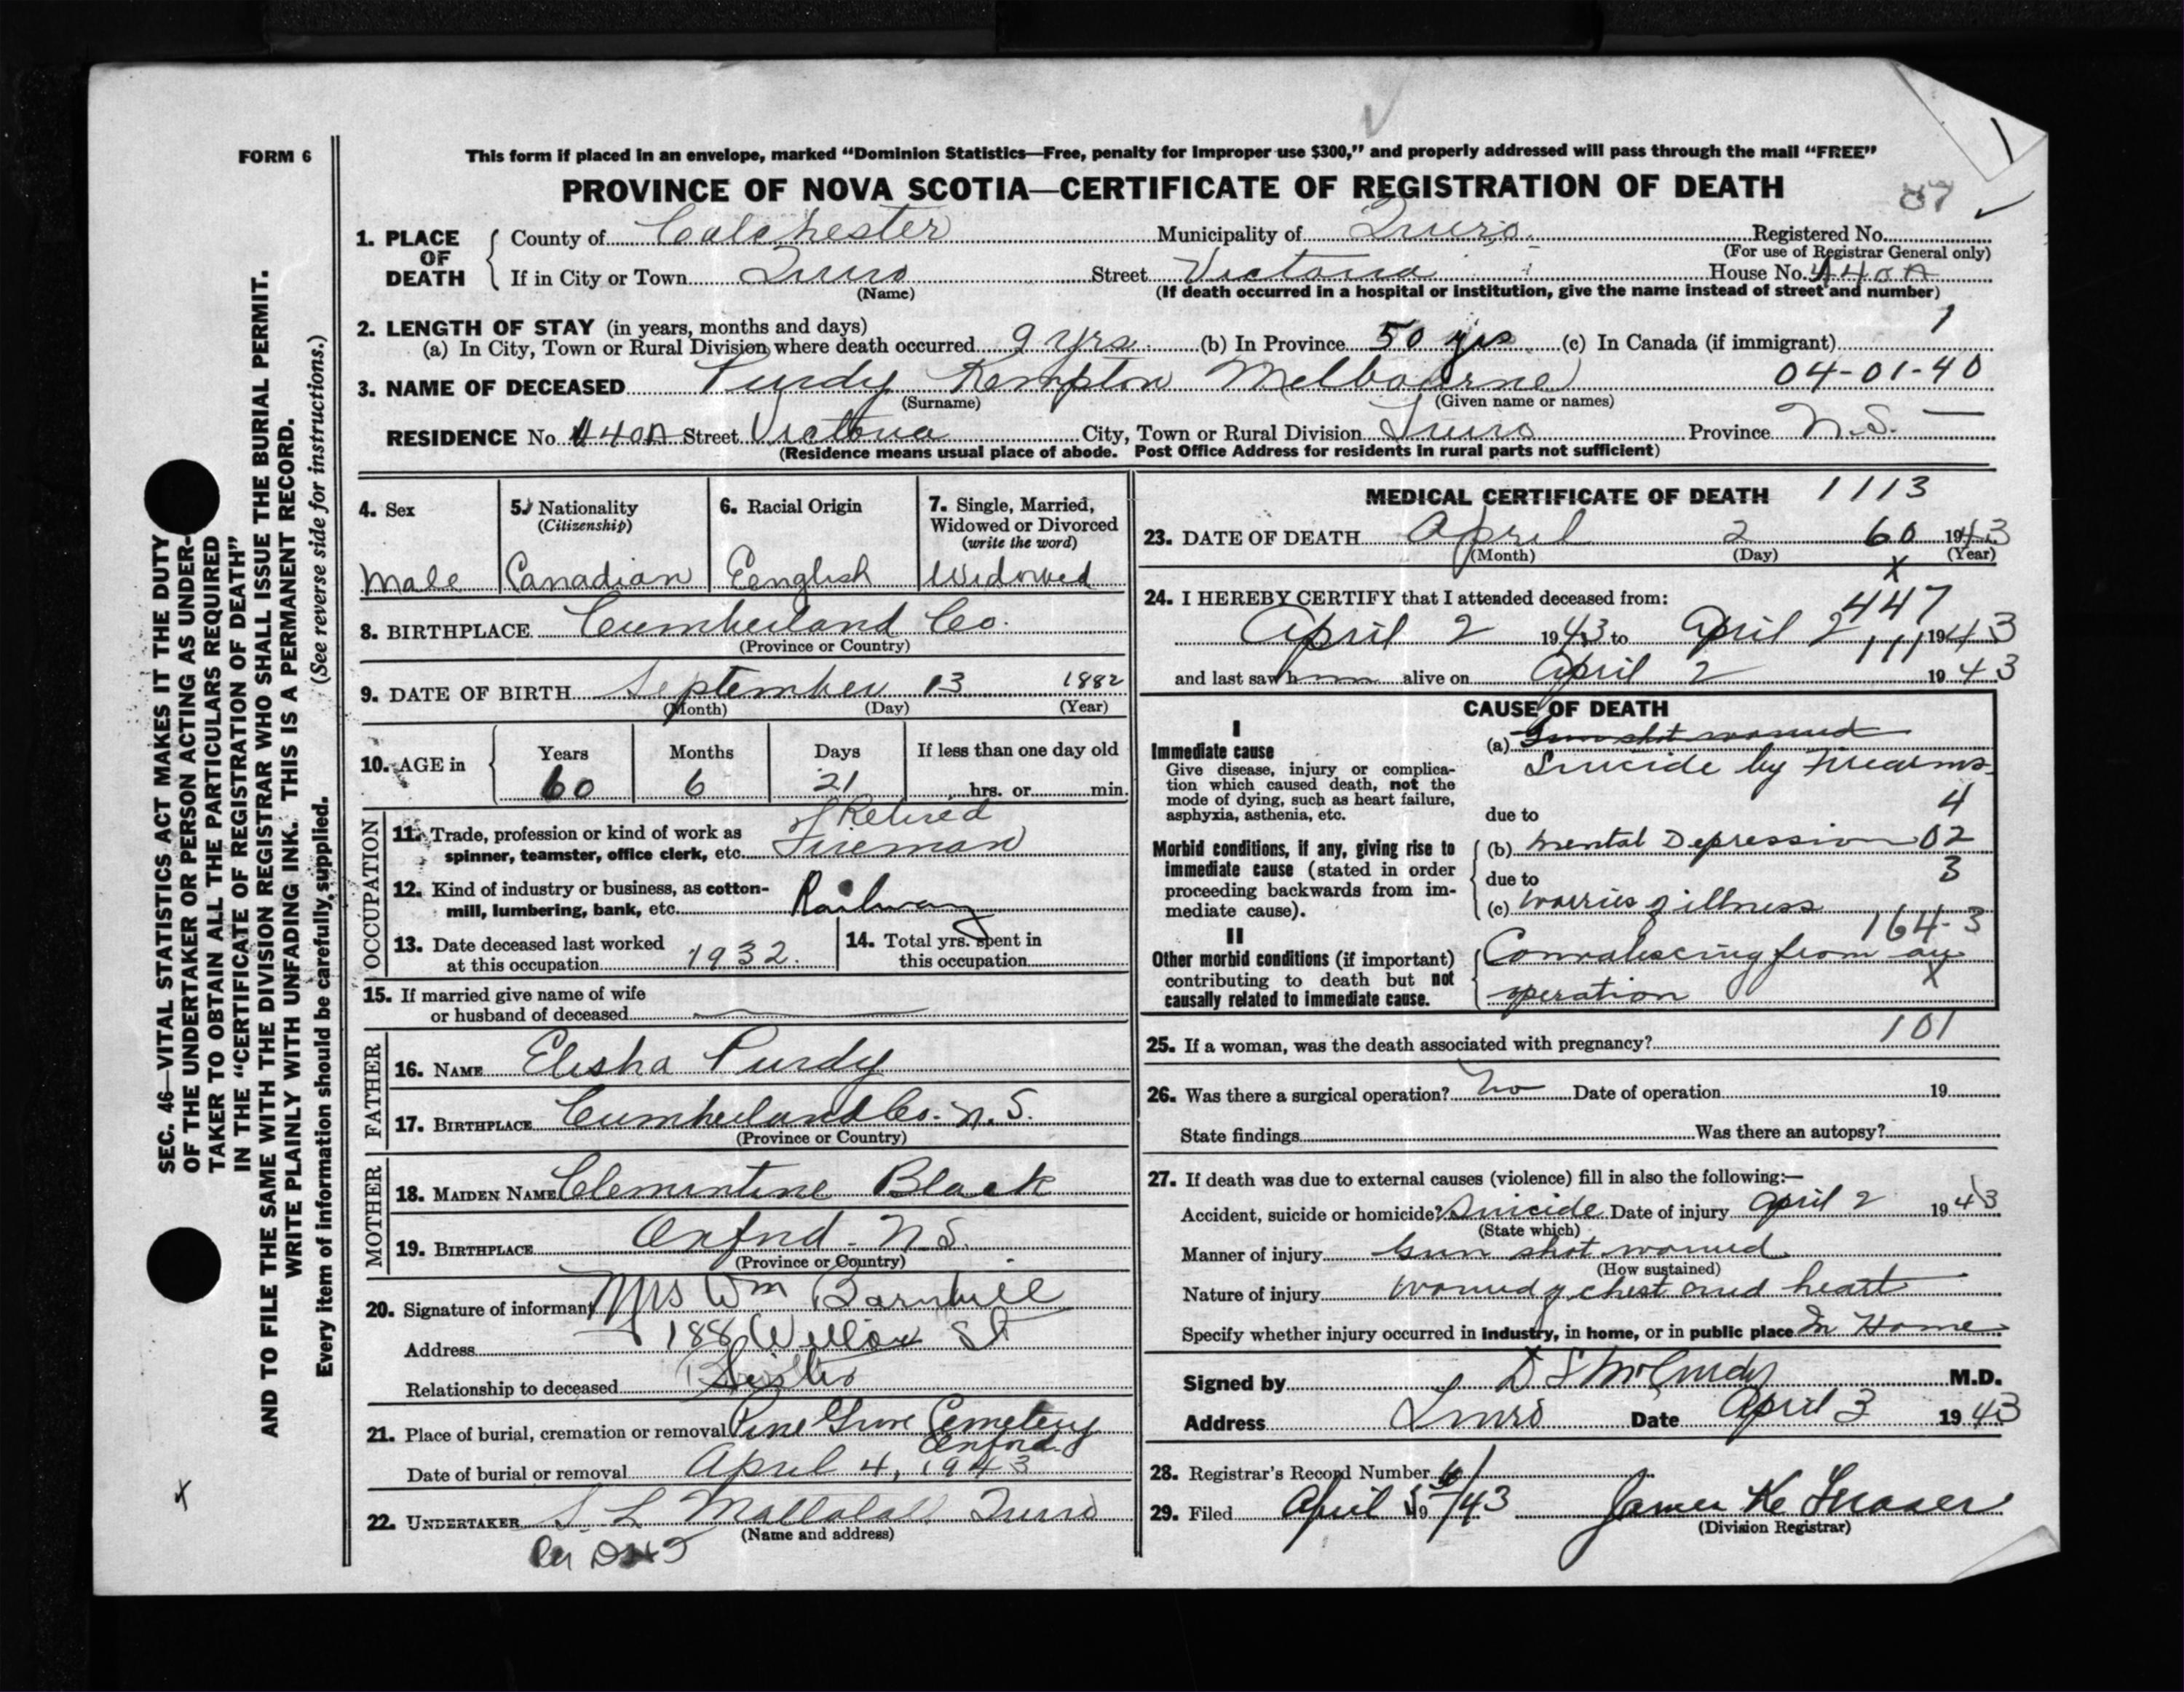 FORM 6
This form if placed in an envelope, marked “Dominion Statistics—Free, penalty for improper use $300,” and properly addressed will pass through the mail “FREE”
PROVINCE OF NOVA SCOTIA—CERTIFICATE OF REGISTRATION OF DEATH
1. PLACE OF DEATH
County of Colchester Municipality of Truro Registered No.
(For use of Registrar General only)
If in City or Town Truro Street Victoria House No. 440A
(Name) (If death occurred in a hospital or institution, give the name instead of street and number)
2. LENGTH OF STAY (in years, months and days) 1
(a) In City, Town or Rural Division where death occurred 9 yrs. (b) In Province 50 yrs (c) In Canada (if immigrant)
3. NAME OF DECEASED Purdy Kempton Melbourne 04-01-40
(Surname) (Given name or names)
RESIDENCE No. 440A Street Victoria City, Town or Rural Division Truro Province N.S.
(Residence means usual place of abode. Post Office Address for residents in rural parts not sufficient)
4. Sex
Male
5. Nationality
(Citizenship)
Canadian
6. Racial Origin
Eenglish
7. Single, Married,
Widowed or Divorced
(write the word)
Widowed
8. BIRTHPLACE Cumberland Co.
(Province or Country)
9. DATE OF BIRTH September 13 1882
(Month) (Day) (Year)
10. AGE in
Years Months Days If less than one day old
60 6 21 hrs. or min.
OCCUPATION
Retired
11. Trade, profession or kind of work as
spinner, teamster, office clerk, etc. Fireman
12. Kind of industry or business, as cotton-
mill, lumbering, bank, etc. Railway
13. Date deceased last worked
at this occupation 1932.
14. Total yrs. spent in
this occupation
15. If married give name of wife
or husband of deceased
FATHER
16. NAME Elisha Purdy
17. BIRTHPLACE Cumberland Co. N.S.
(Province or Country)
MOTHER
18. MAIDEN NAME Clementine Black
19. BIRTHPLACE Oxford - N.S.
(Province or Country)
20. Signature of informant Mrs Wm Barnhill
Address 188 Willow St
Relationship to deceased Sister
21. Place of burial, cremation or removal Pine Grove Cemetery
Oxford
Date of burial or removal April 4, 1943
22. UNDERTAKER S. L. Truro
(Name and address)
Per
MEDICAL CERTIFICATE OF DEATH 1113
23. DATE OF DEATH April 2 60 1943
(Month) (Day) (Year)
X
24. I HEREBY CERTIFY that I attended deceased from: 447
April 2 1943 to April 2 1943
111
and last saw him alive on April 2 1943
CAUSE OF DEATH
I
Immediate cause
Give disease, injury or complica-
tion which caused death, not the
mode of dying, such as heart failure,
asphyxia, asthenia, etc.
(a) Gun shot wound
Suicide by Firearms.
4
due to
Morbid conditions, if any, giving rise to
immediate cause (stated in order
proceeding backwards from im-
mediate cause).
(b) Mental Depression 02
due to 3
(c) Worries of illness
164-3
II
Other morbid conditions (if important)
contributing to death but not
causally related to immediate cause.
Convalescing from an
operation X
101
25. If a woman, was the death associated with pregnancy?
26. Was there a surgical operation? No Date of operation 19
State findings Was there an autopsy?
27. If death was due to external causes (violence) fill in also the following:—
Accident, suicide or homicide? Suicide Date of injury April 2 1943
(State which)
Manner of injury Gun shot wound
(How sustained)
Nature of injury wound of chest and heart
Specify whether injury occurred in industry, in home, or in public place In Home
Signed by D S McCurdy M.D.
Address Truro Date April 3 1943
28. Registrar's Record Number
29. Filed April 5 19/43 James K. Fraser
(Division Registrar)
SEC. 46—VITAL STATISTICS ACT MAKES IT THE DUTY
OF THE UNDERTAKER OR PERSON ACTING AS UNDER-
TAKER TO OBTAIN ALL THE PARTICULARS REQUIRED
IN THE “CERTIFICATE OF REGISTRATION OF DEATH”
AND TO FILE THE SAME WITH THE DIVISION REGISTRAR WHO SHALL ISSUE THE BURIAL PERMIT.
WRITE PLAINLY WITH UNFADING INK. THIS IS A PERMANENT RECORD.
Every item of information should be carefully supplied. (See reverse side for instructions.)